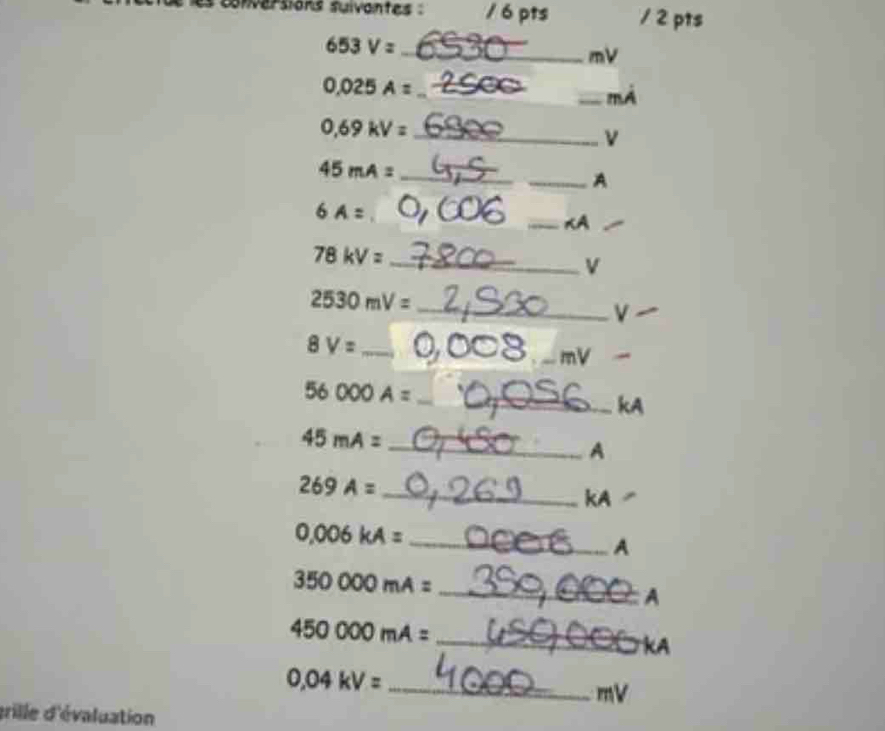 les conversions suivantes : / 6 pts / 2 pts
653 V = 6530 mV
0,025 A = 2500 mA
0,69 kV = 6900 V
45 mA = 4,5 A
6 A = 0,006 kA
78 kV = 7800 V
2530 mV = 2,530 V
8 V = 0,008 mV
56 000 A = 0,056 kA
45 mA = 0,450 A
269 A = 0,269 kA
0,006 kA = 0006 A
350 000 mA = 350,000 A
450 000 mA = 450,000 kA
0,04 kV = 4000 mV
grille d'évaluation